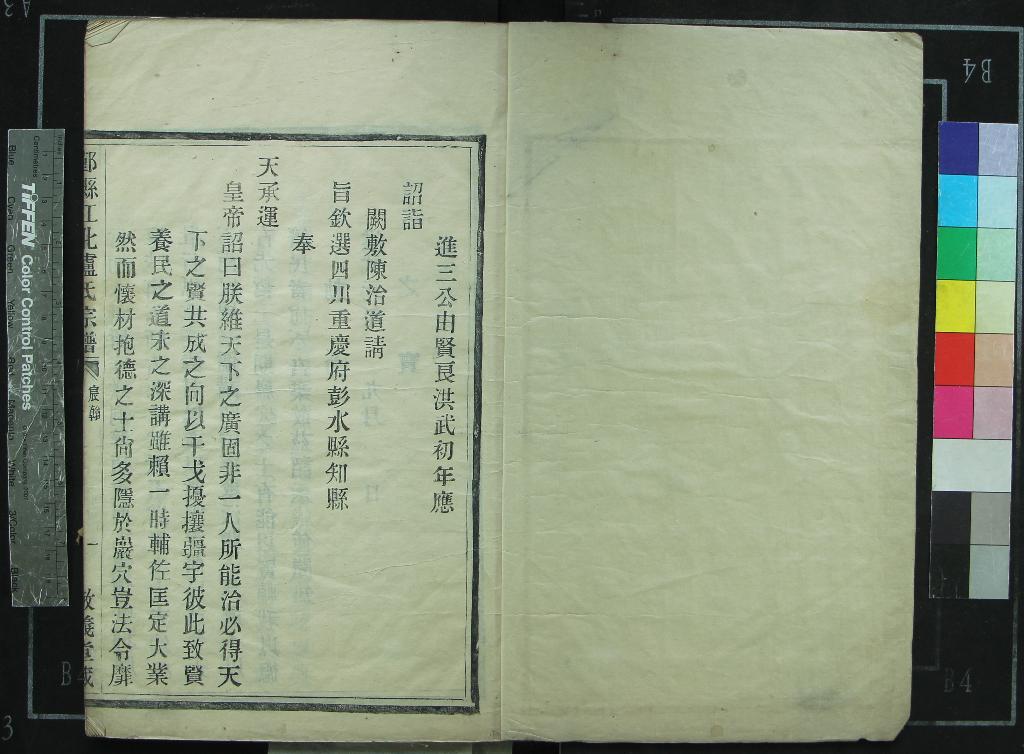 進三公由賢良洪武初年應
詔詣
闕敷陳治道請
旨欽選四川重慶府彭水縣知縣
奉
天承運
皇帝詔曰朕維天下之廣固非一人所能治必得天
下之賢共成之向以干戈擾攘疆宇彼此致賢
養民之道未之深講雖賴一時輔佐匡定大業
然而懷材抱德之士尙多隱於巖穴豈法令靡
縣江北盧氏宗譜 宸翰 一 敦義堂
TIFFEN Color Control Patches
Centimetres
B4
B4
B4
A3
3